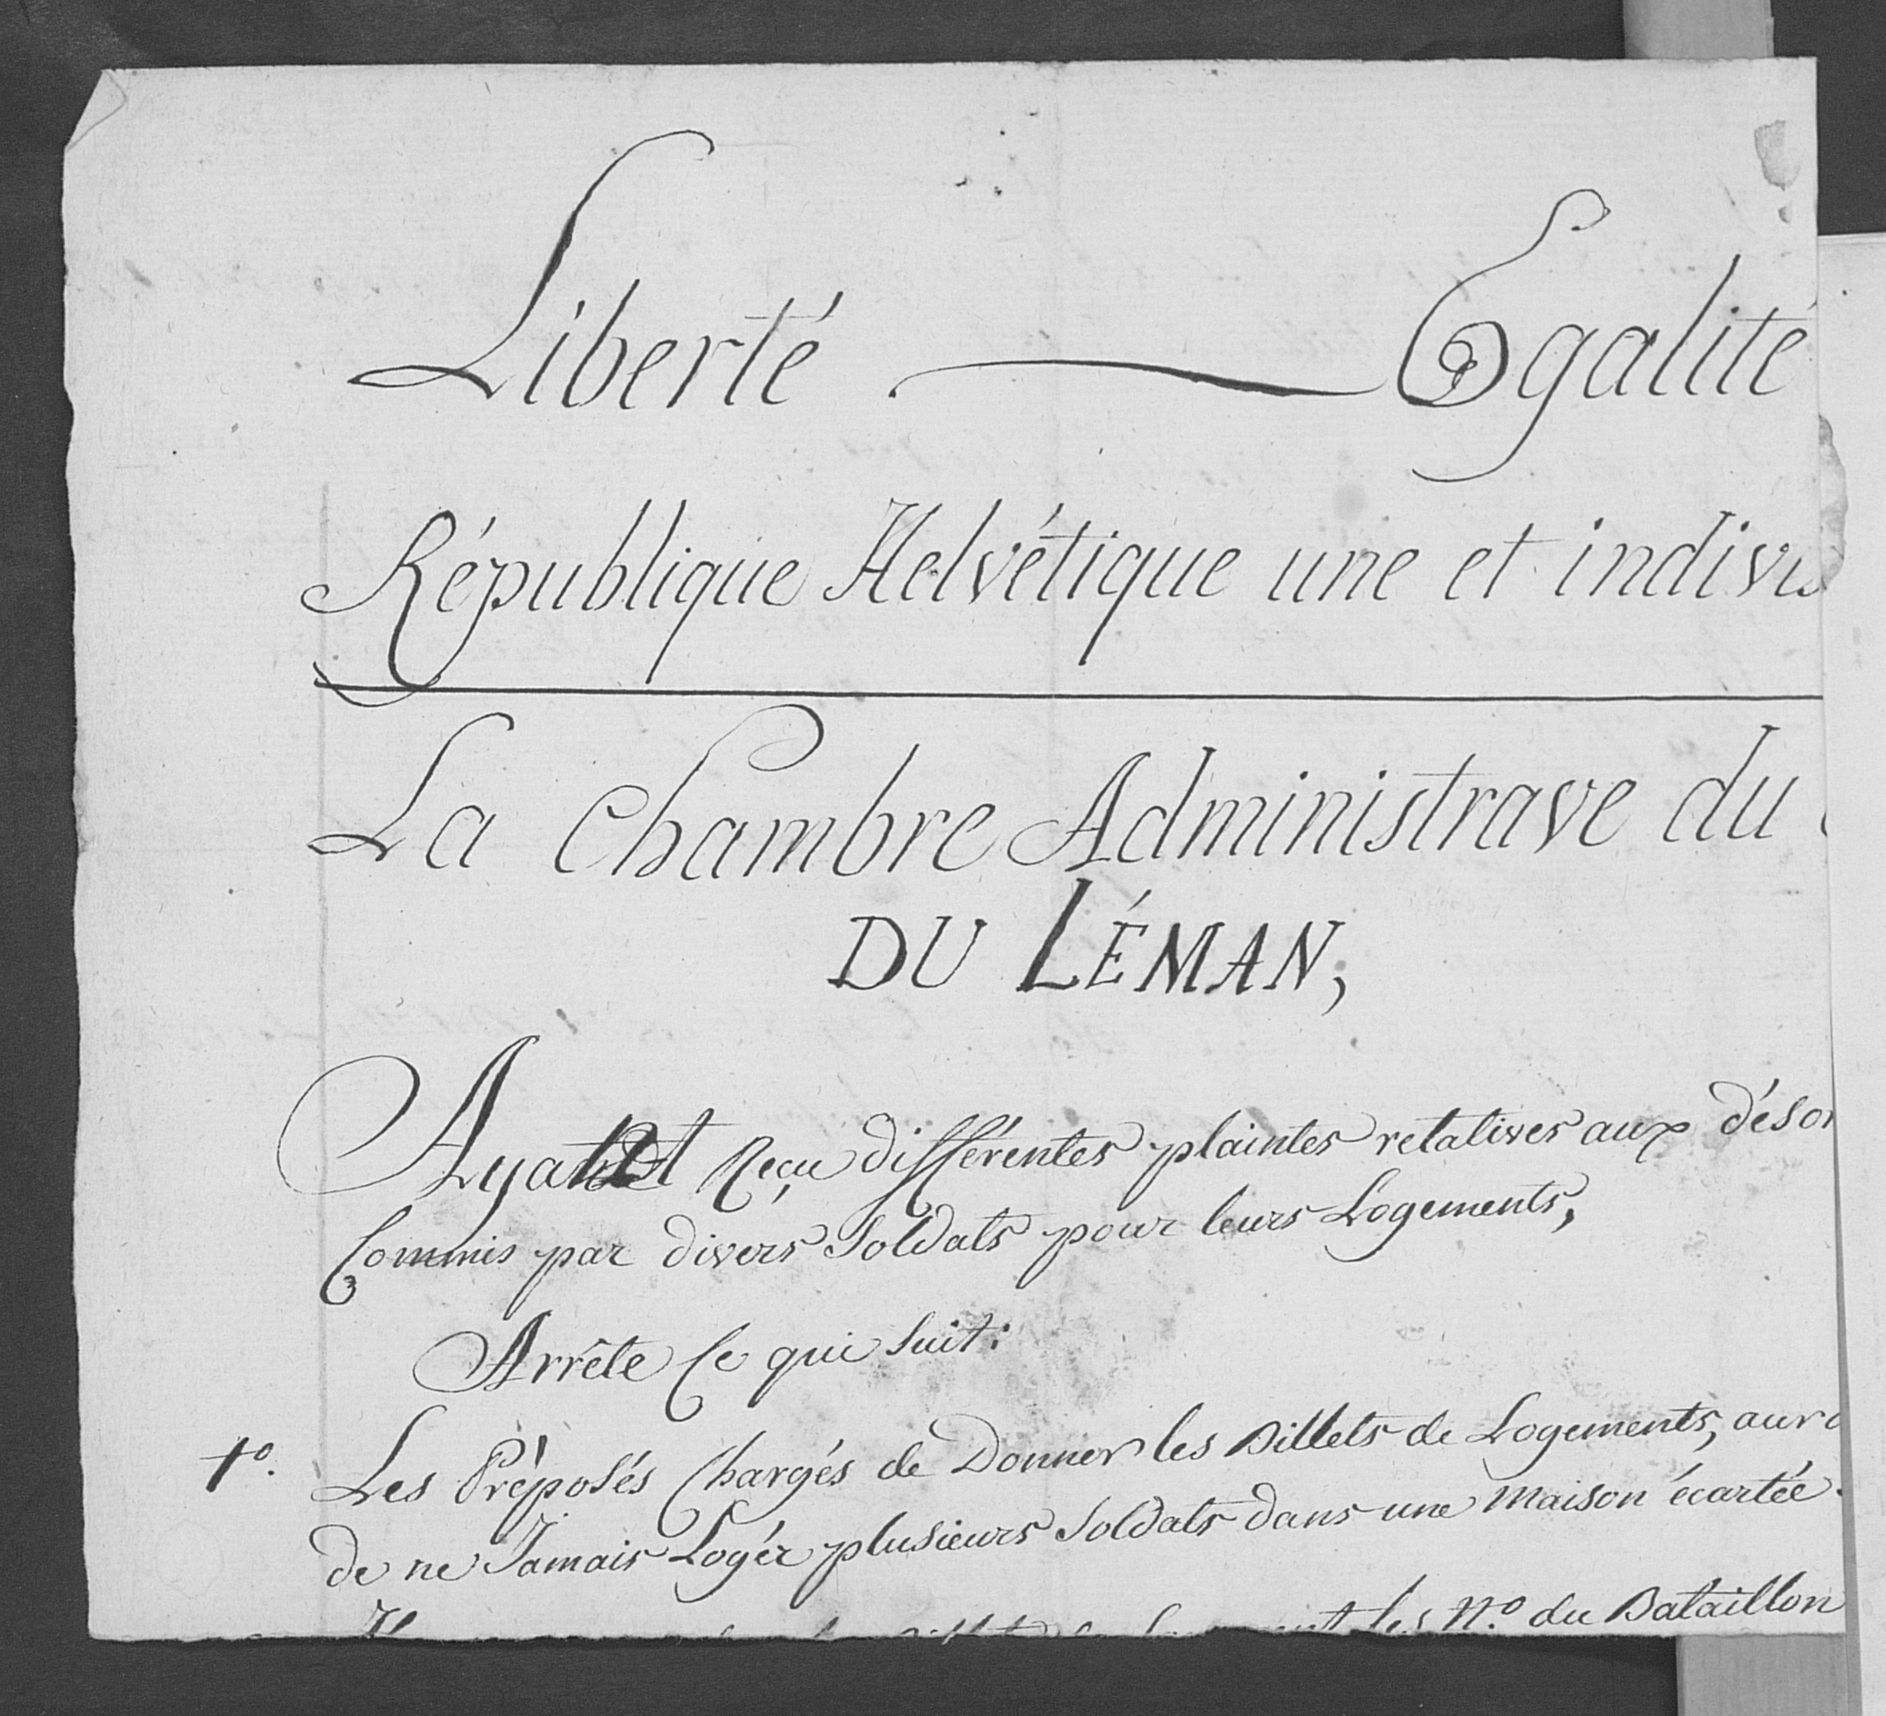 Liberté Egalité
République Helvétique une et indivis
La Chambre Administrave du
DU LÉMAN,
Ayant Reçu différentes plaintes relatives aux désor
Commis par divers Soldats pour leurs Logements,
Arrête Ce qui Suit:
1º. Les Préposés Chargés de Donner les Billets de Logements, auro
de ne Jamais Logér plusieurs Soldats dans une Maison écartée.
les Nº. du Bataillon